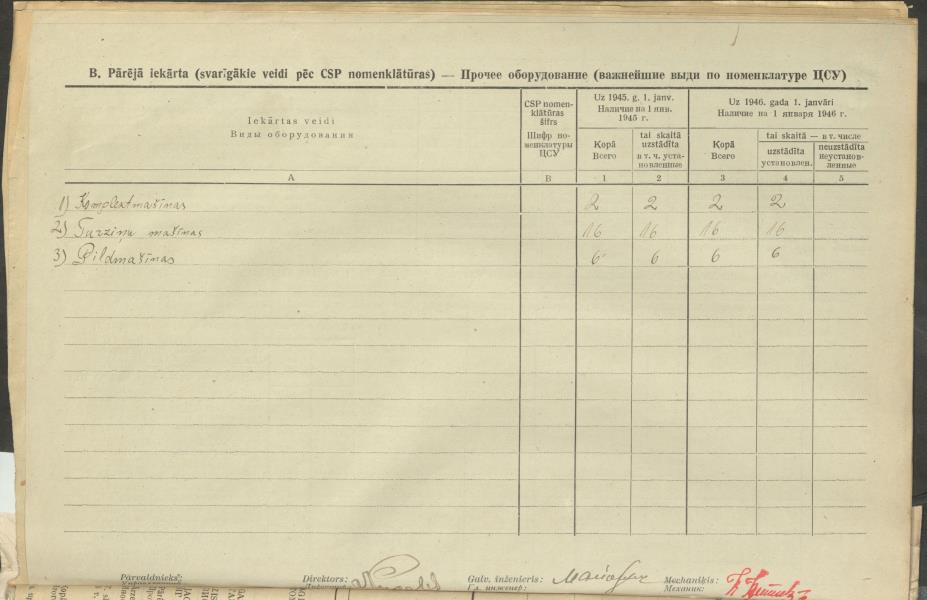 B. Pārējā iekārta (svarīgākie veidi pēc CSP nomenklātūras) — Прочее оборудование (важнейшие выди по номенклатуре ЦСУ)
Iekārtas veidi
Виды оборудования
CSP nomen-
klātūras
šifrs
Шифр но-
менклатуры
ЦСУ
Uz 1945. g. 1. janv.
Наличие на 1 янв.
1945 г.
Uz 1946. gada 1. janvāri
Наличие на 1 января 1946 г.
Kopā
Всего
tai skaitā
uzstādīta
в т. ч. уста-
новленные
Kopā
Всего
tai skaitā — в т. числе
uzstādīta
установлен.
neuzstādīta
неустанов-
ленные
A B 1 2 3 4 5
1) Komplextmašīnas 2 2 2 2
2) Turziņu mašīnas 16 16 16 16
3) Pildmašīnas 6 6 6 6
Pārvaldnieks:
Directors:
Galv. inženieris:
Гл. инженер:
Mechaniķis:
Механик: